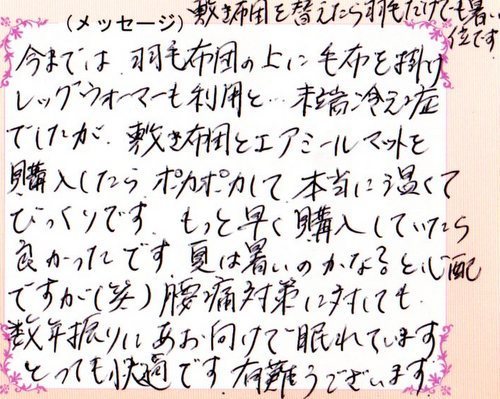 (メッセージ) 敷き布団を替えたら羽毛だけでも暑い
位です
今までは 羽毛布団の上に毛布を掛け
レッグウォーマーも利用と… 末端冷え症
でしたが、敷き布団とエアミールマットを
購入したら ポカポカして 本当に温くて
びっくりです。もっと早く購入していたら
良かったです 夏は暑いのかな?と心配
ですが(笑) 腰痛対策に対しても
数年振りにあお向けで眠れています
とっても快適です。有難うございます。